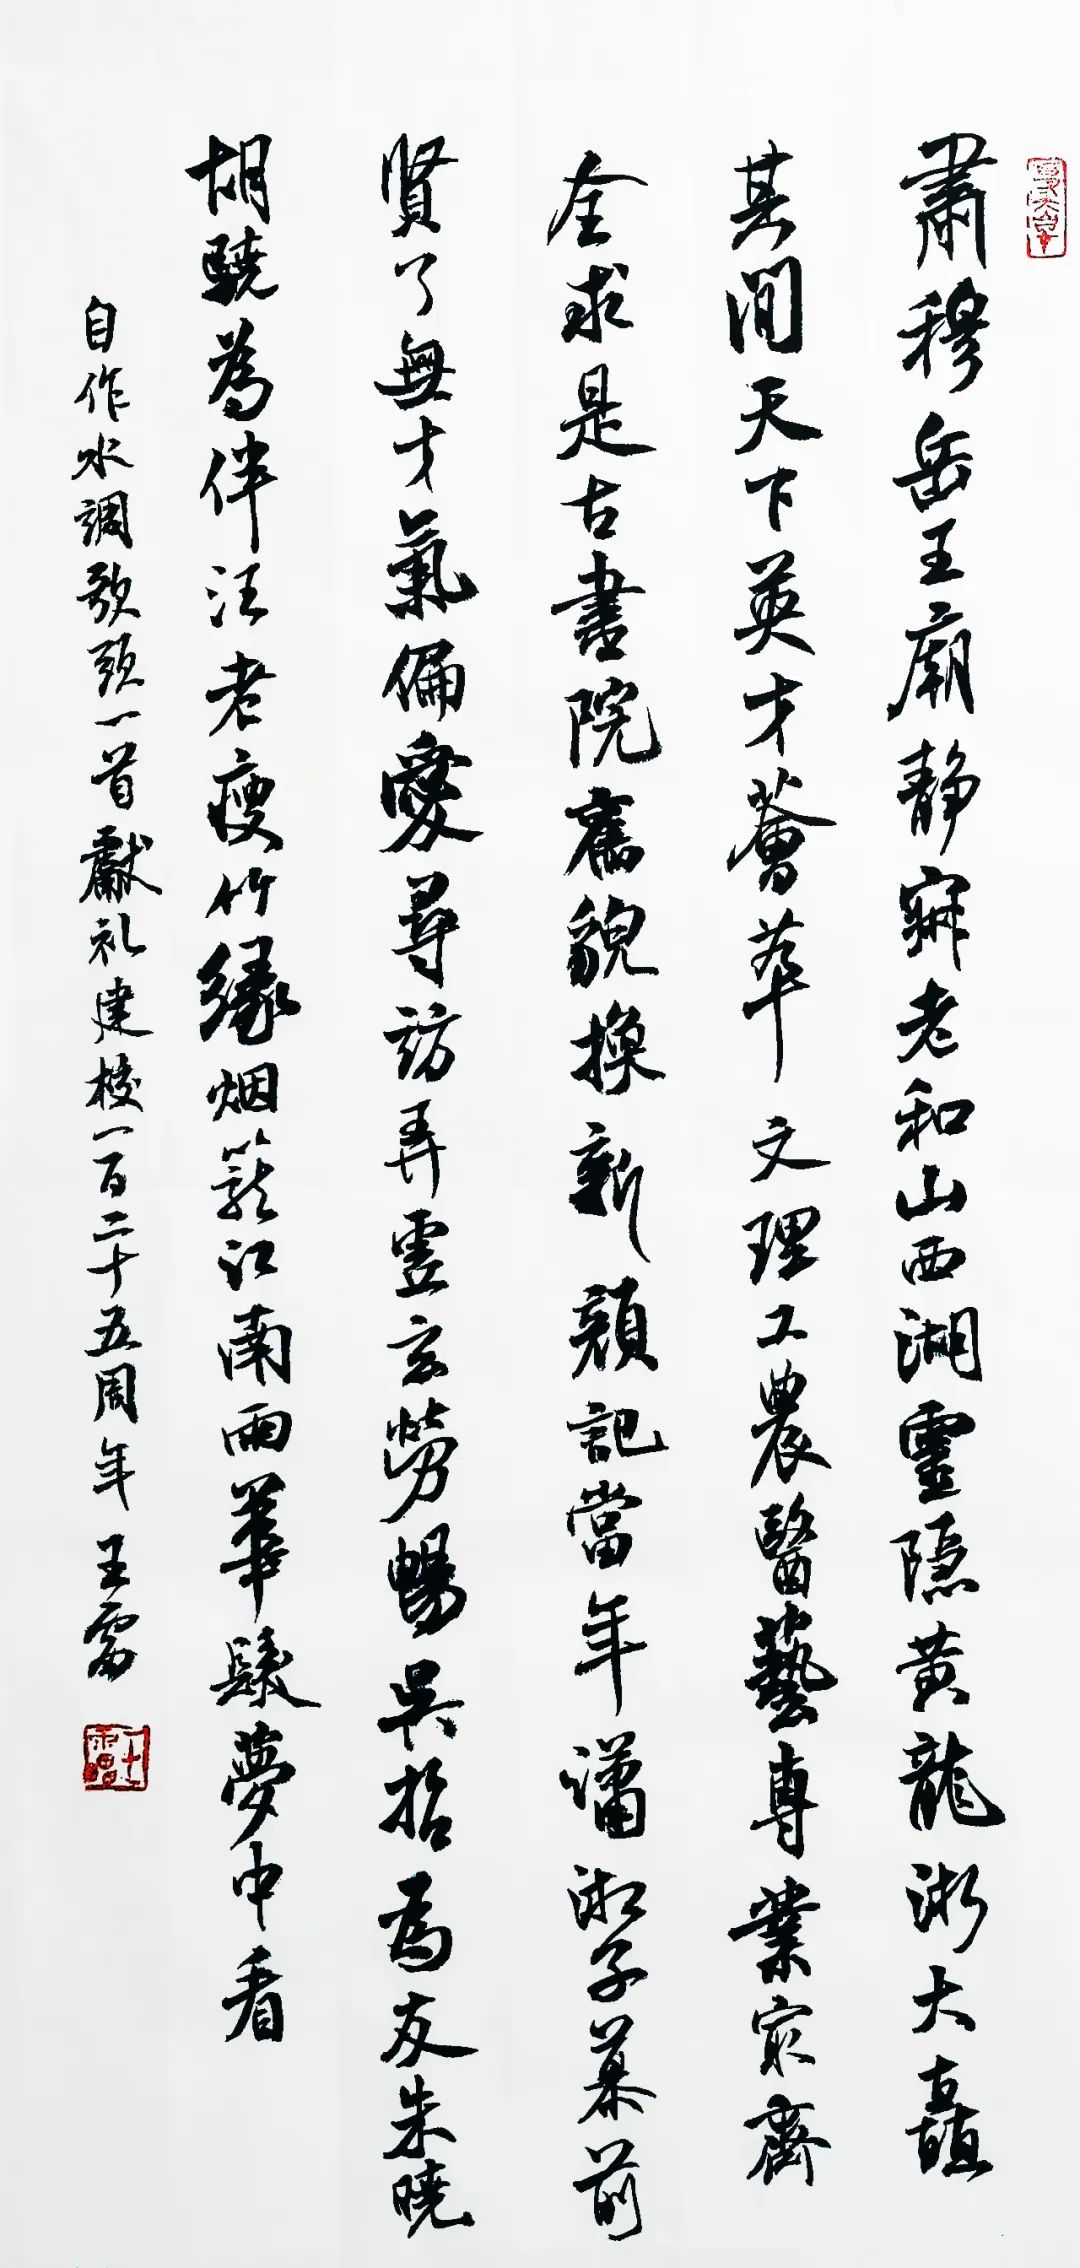 肅穆岳王廟靜寂老和山西湖靈隱黃龍浙大矗
其間天下英才薈萃文理工農醫藝專業最齊
全求是古書院舊貌換新顏記當年瀟湘子慕前
賢了無才氣偏愛尋訪弄虛玄勞暢吳為友朱曉
胡驍為伴汪老瘦竹緣烟籠江南雨華髮夢中看
自作水調歌頭一首獻礼建校一百二十五周年 王雷
王雷